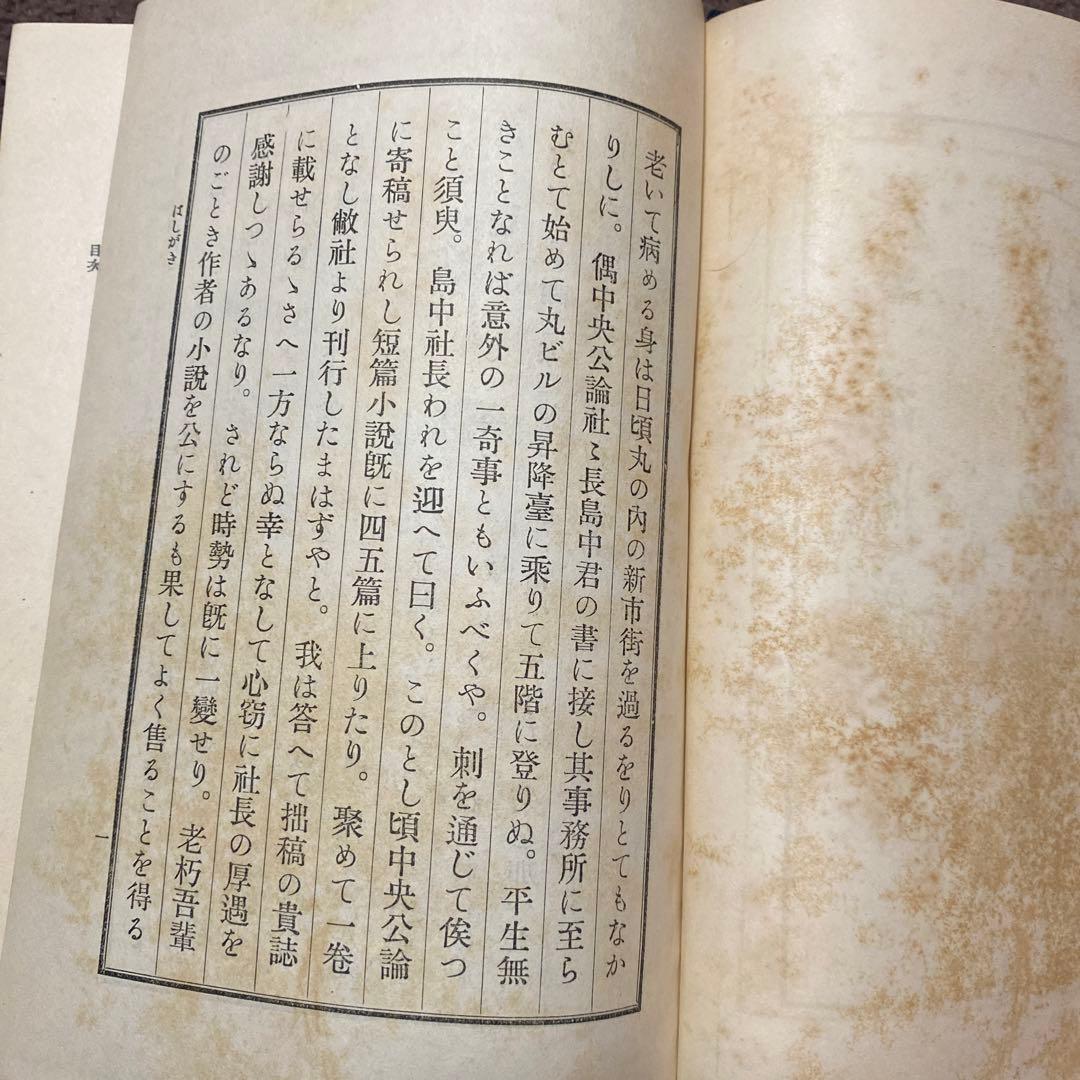 老いて病める身は日頃丸の內の新市街を過るをりとてもなか
りしに。偶中央公論社〻長島中君の書に接し其事務所に至ら
むとて始めて丸ビルの昇降臺に乘りて五階に登りぬ。平生無
きことなれば意外の一奇事ともいふべくや。刺を通じて俟つ
こと須臾。島中社長われを迎へて曰く。このとし頃中央公論
に寄稿せられし短篇小說旣に四五篇に上りたり。聚めて一卷
となし敝社より刊行したまはずやと。我は答へて拙稿の貴誌
に載せらるゝさへ一方ならぬ幸となして心窃に社長の厚遇を
感謝しつゝあるなり。されど時勢は旣に一變せり。老朽吾輩
のごとき作者の小說を公にするも果してよく售ることを得る
はしがき
一
目次